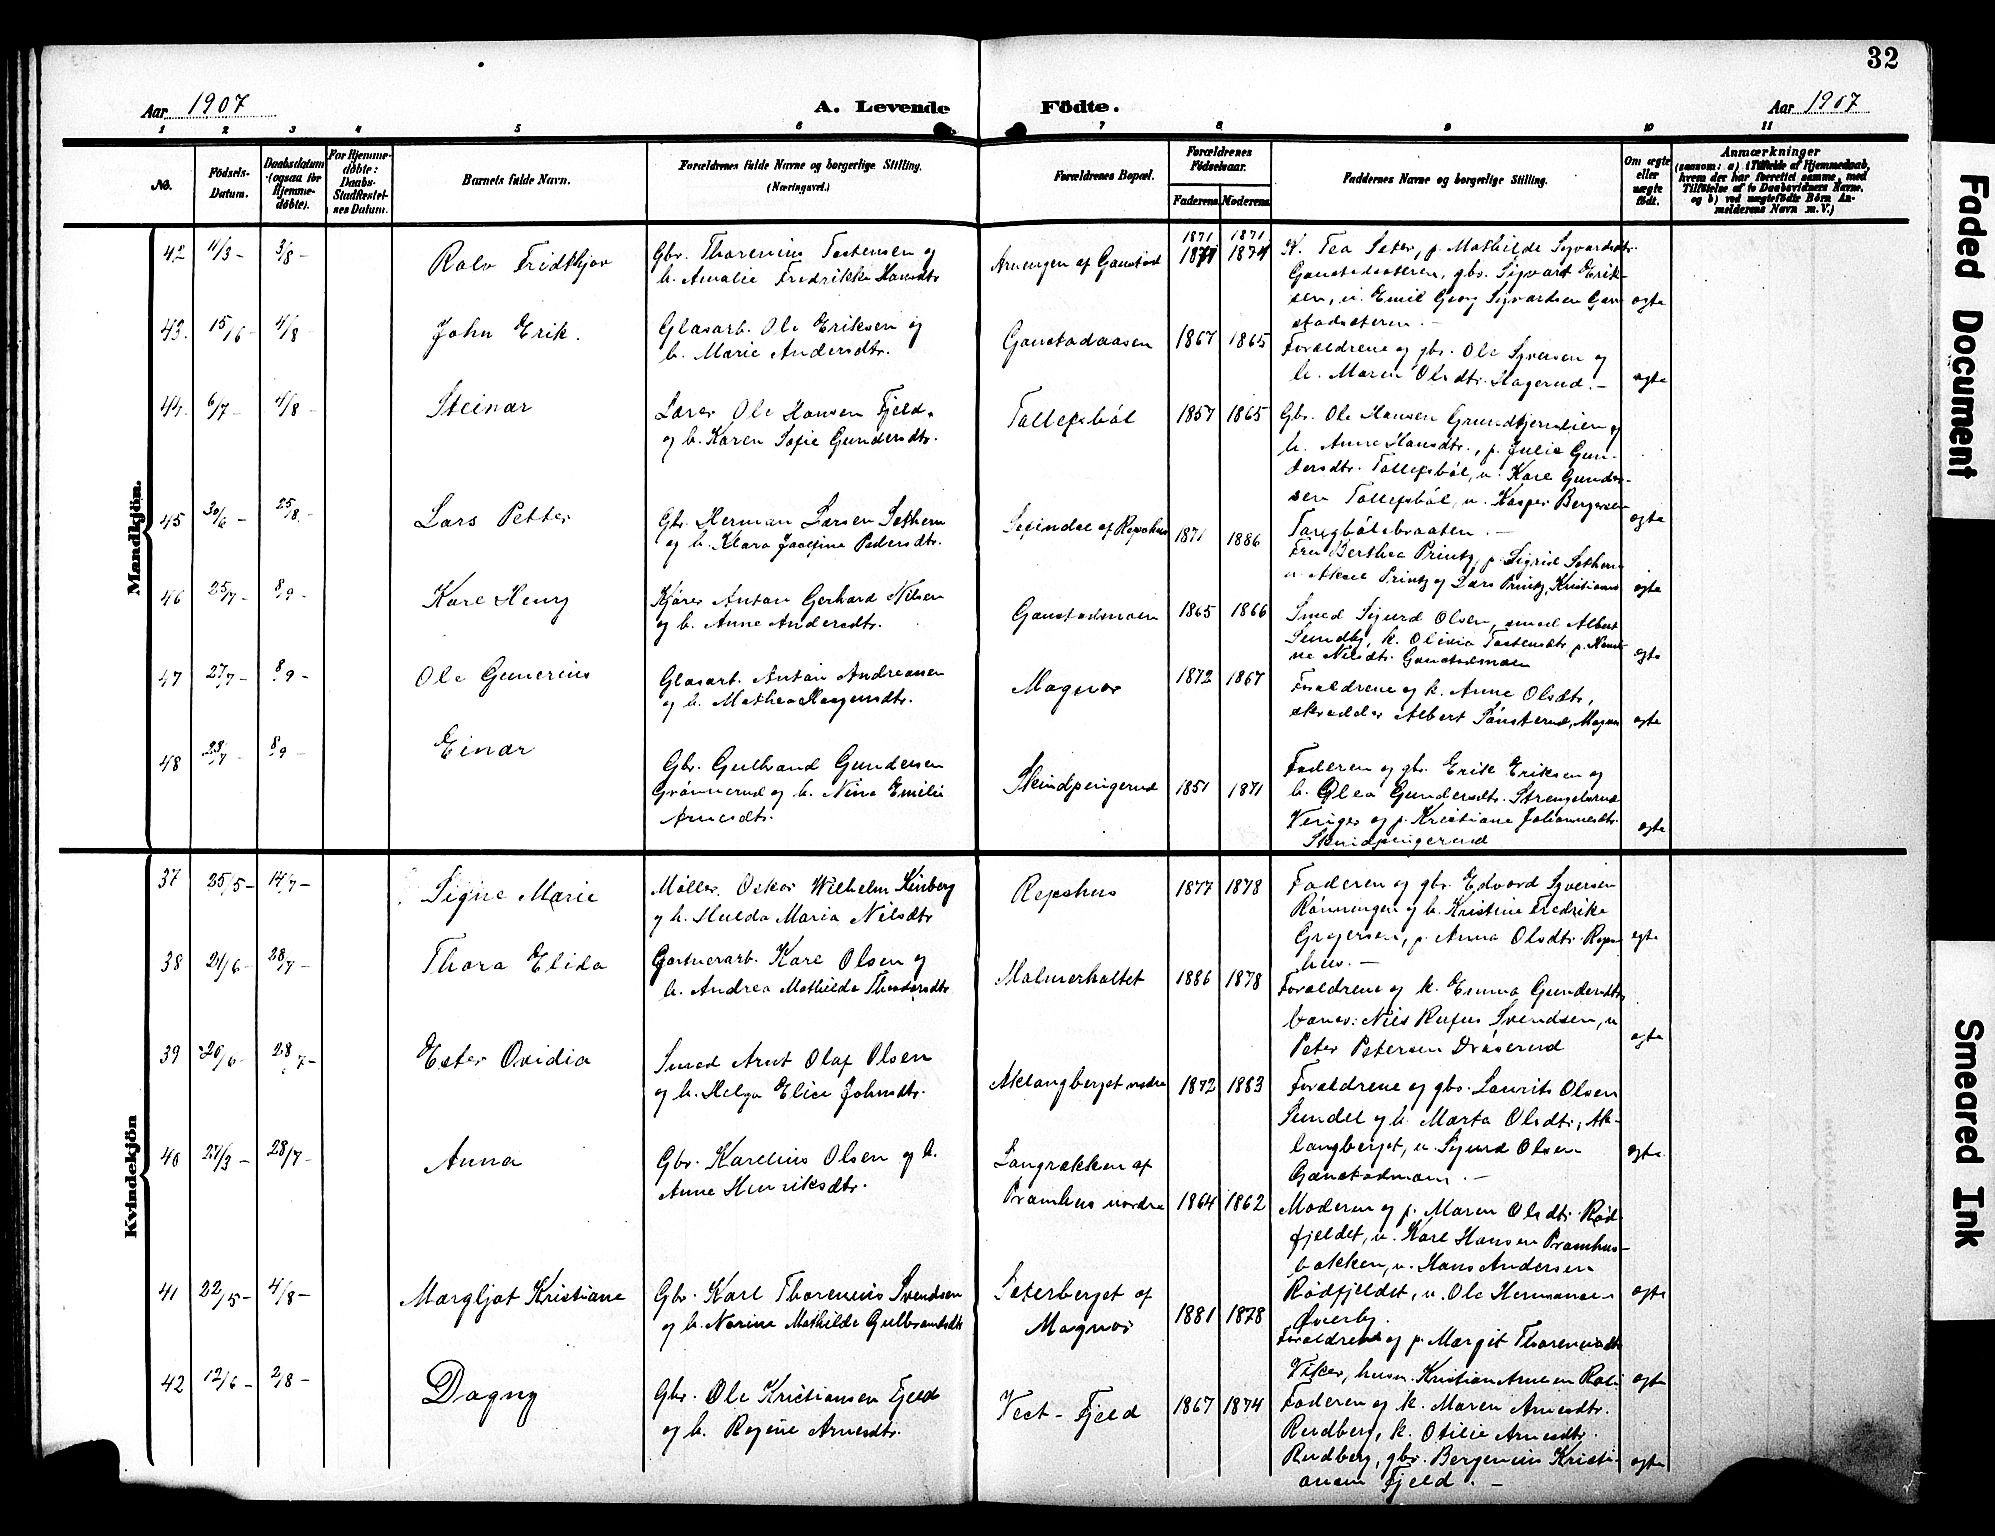 32
Aar 1907
A. Levende
Födte.
Aar 1907
1 2 3 4 5 6 7 8 9 10 11
No.
Födsels-
Datum.
Daabsdatum
(ogsaa for
Hjemme-
döbte).
For Hjemme-
döbte:
Daabs-
Stadfæstel-
ses Datum.
Barnets fulde Navn.
Forældrenes fulde Navne og borgerlige Stilling.
(Næringsvei.)
Forældrenes Bopæl.
Forældrenes
Födselsaar.
Faderens. Moderens.
Faddernes Navne og borgerlige Stilling.
Om ægte
eller
uægte
födt.
Anmærkninger
(saasom: a) i Tilfælde af Hjemmedaab,
hvem der har forrettet samme, med
Tilföielse af to Daabsvidners Navne,
og b) ved uægtefödte Börn An-
melderens Navn m. V.)
Mandkjön.
42 11/3 - 3/8 -
Rolv Fridthjov
Gbr. Thorenius Tostensen og
h. Amalie Fredrikke Hansdtr
Arnengen af Gaustad
1871 1871
1871 1874
K. Tea Sæter, p. Mathilde Sigvardsdtr
Gaustadsæteren, gbr. Sigvart Erik-
sen, u. Emil Georg Sigvardsen Gau-
stadsæteren. -
ægte
43. 15/6 - 4/8 -
John Erik.
Glasarb. Ole Eriksen og
h. Marie Andersdtr.
Gaustadaasen
1867 1865
Forældrene og gbr. Ole Syversen og
h. Maren Olsdtr. Hagerud. -
ægte
44. 6/7 - 4/8 -
Steinar
Lærer Ole Hansen Fjeld
og h. Karen Sofie Gundersdtr.
Tollefsböl
1857 1865
Gbr. Ole Hansen Grundtjernlien og
h. Anne Hansdtr., p. Julie Gun-
dersdtr. Tollefsböl, u. Karl Gunder-
sen Tollefsböl, u. Kasper Bergersen
Tangbölsbraaten. -
ægte
45 30/6 - 25/8 -
Lars Petter
Gbr. Herman Larsen Sæthern
og h. Klara Josefine Pedersdtr.
af Repshus
1871 1886
Fru Berthea Printz, p. Sigrid Sæthern
u. Aksel Printz og Lars Printz, Kristiania
ægte
46 25/7 - 8/9 -
Karl Henry
Kjörer Anton Gerhard Nilsen
og h. Anne Andersdtr.
Gaustadmoen
1865 1866
Smed Sigurd Olsen, smed Albert
Sundby, k. Olivia Tostensdtr. p. Hansi-
ne Nilsdtr. Gaustadmoen
ægte
47 27/7 - 8/9 -
Ole Gunerius
Glasarb. Anton Andreasen
og h. Mathea Haagensdtr.
Magnor
1872 1867
Forældrene og k. Anne Olsdtr,
skrædder Albert Sönsterud, Magnor
ægte
48 23/7 - 8/9 -
Einar
Gbr. Gulbrand Gundersen
Grönnerud og h. Nina Emilie
Arnesdtr.
Skindpengerud
1851 1871
Faderen og gbr. Erik Eriksen og
h. Olea Gundersdtr. Strengelsrud
Vinger og p. Kristiane Johannesdtr.
Skindpengerud
ægte
Kvindekjön
37 25/5 - 14/7 -
Signe Marie
Möller Oskar Wilhelm Stinberg
og h. Hulda Maria Nilsdtr
Repshus
1877 1878
Faderen og gbr. Edvard Syversen
Rönnengen og h. Kristine Fredrike
Gregersen, p. Anna Olsdtr. Reps-
hus. -
ægte
38 21/6 - 28/7 -
Thora Elida
Gartnerarb. Karl Olsen og
h. Andrea Mathilde Theodorsdtr.
Malmerholtet
1886 1878
Forældrene og k. Emma Gundersdtr,
banev: Nils Rufus Svendsen, u
Peter Petersen Dröserud
ægte
39 20/6 - 28/7 -
Ester Ovidia
Smed Arnt Olaf Olsen
og h. Helga Elise Johnsdtr.
Aklangberget nedre
1872 1883
Forældrene og gbr. Laurits Olsen
Sundet og h. Marta Olsdtr, Ak-
langberget, u. Sigurd Olsen
Gaustadmoen. -
ægte
40 24/3 - 28/7 -
Anna
Gbr. Karelius Olsen og h.
Anne Henriksdtr.
Langrækken af
Pramhus nordre
1864 1862
Moderen og p. Maren Olsdtr. Röd-
fjeldet, u. Karl Hansen Pramhus-
bakken, u. Hans Andersen
Rödfjeldet, u. Ole Hermansen
Överby.
ægte
41 22/5 - 4/8 -
Margljot Kristiane
Gbr. Karl Thorenius Svendsen
og h. Narine Mathilde Gulbrandsdtr
Sæterberget af
Magnor
1881 1878
Forældrene og p. Margit Thoreniusdtr.
Viker, husm. Kristian Arnesen
ægte
42 12/6 - 2/8 -
Dagny
Gbr. Ole Kristiansen Fjeld
og h. Regine Arnesdtr.
Vest-Fjeld
1867 1874
Faderen og k. Maren Arnesdtr.
Rudberg, k. Otilie Arnesdtr.
Rudberg, gbr. Bergenius Kristi-
ansen Fjeld. -
ægte
Faded Document
Smeared Ink